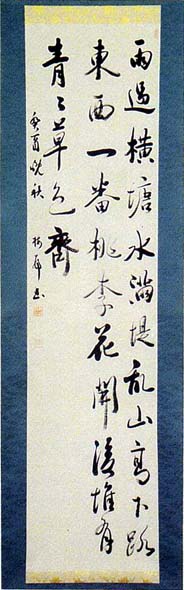 雨過橫塘水滿堤乱山高下路
東西一番桃李花開後惟有
青々草色齊
癸酉晩秋